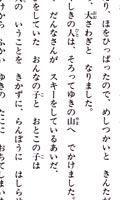 り、ほをひっぱったので、めしつかいと きんたが
、大さわぎと なりました。
しきの人は、そろってゆきの山へ でかけました。
だんなさんが スキーをしているあいだ、
をしていた おんなの子と おとこの子は
いうことを きかずに、らんぼうに はしらせ
ゆきの たにに おちてしまい